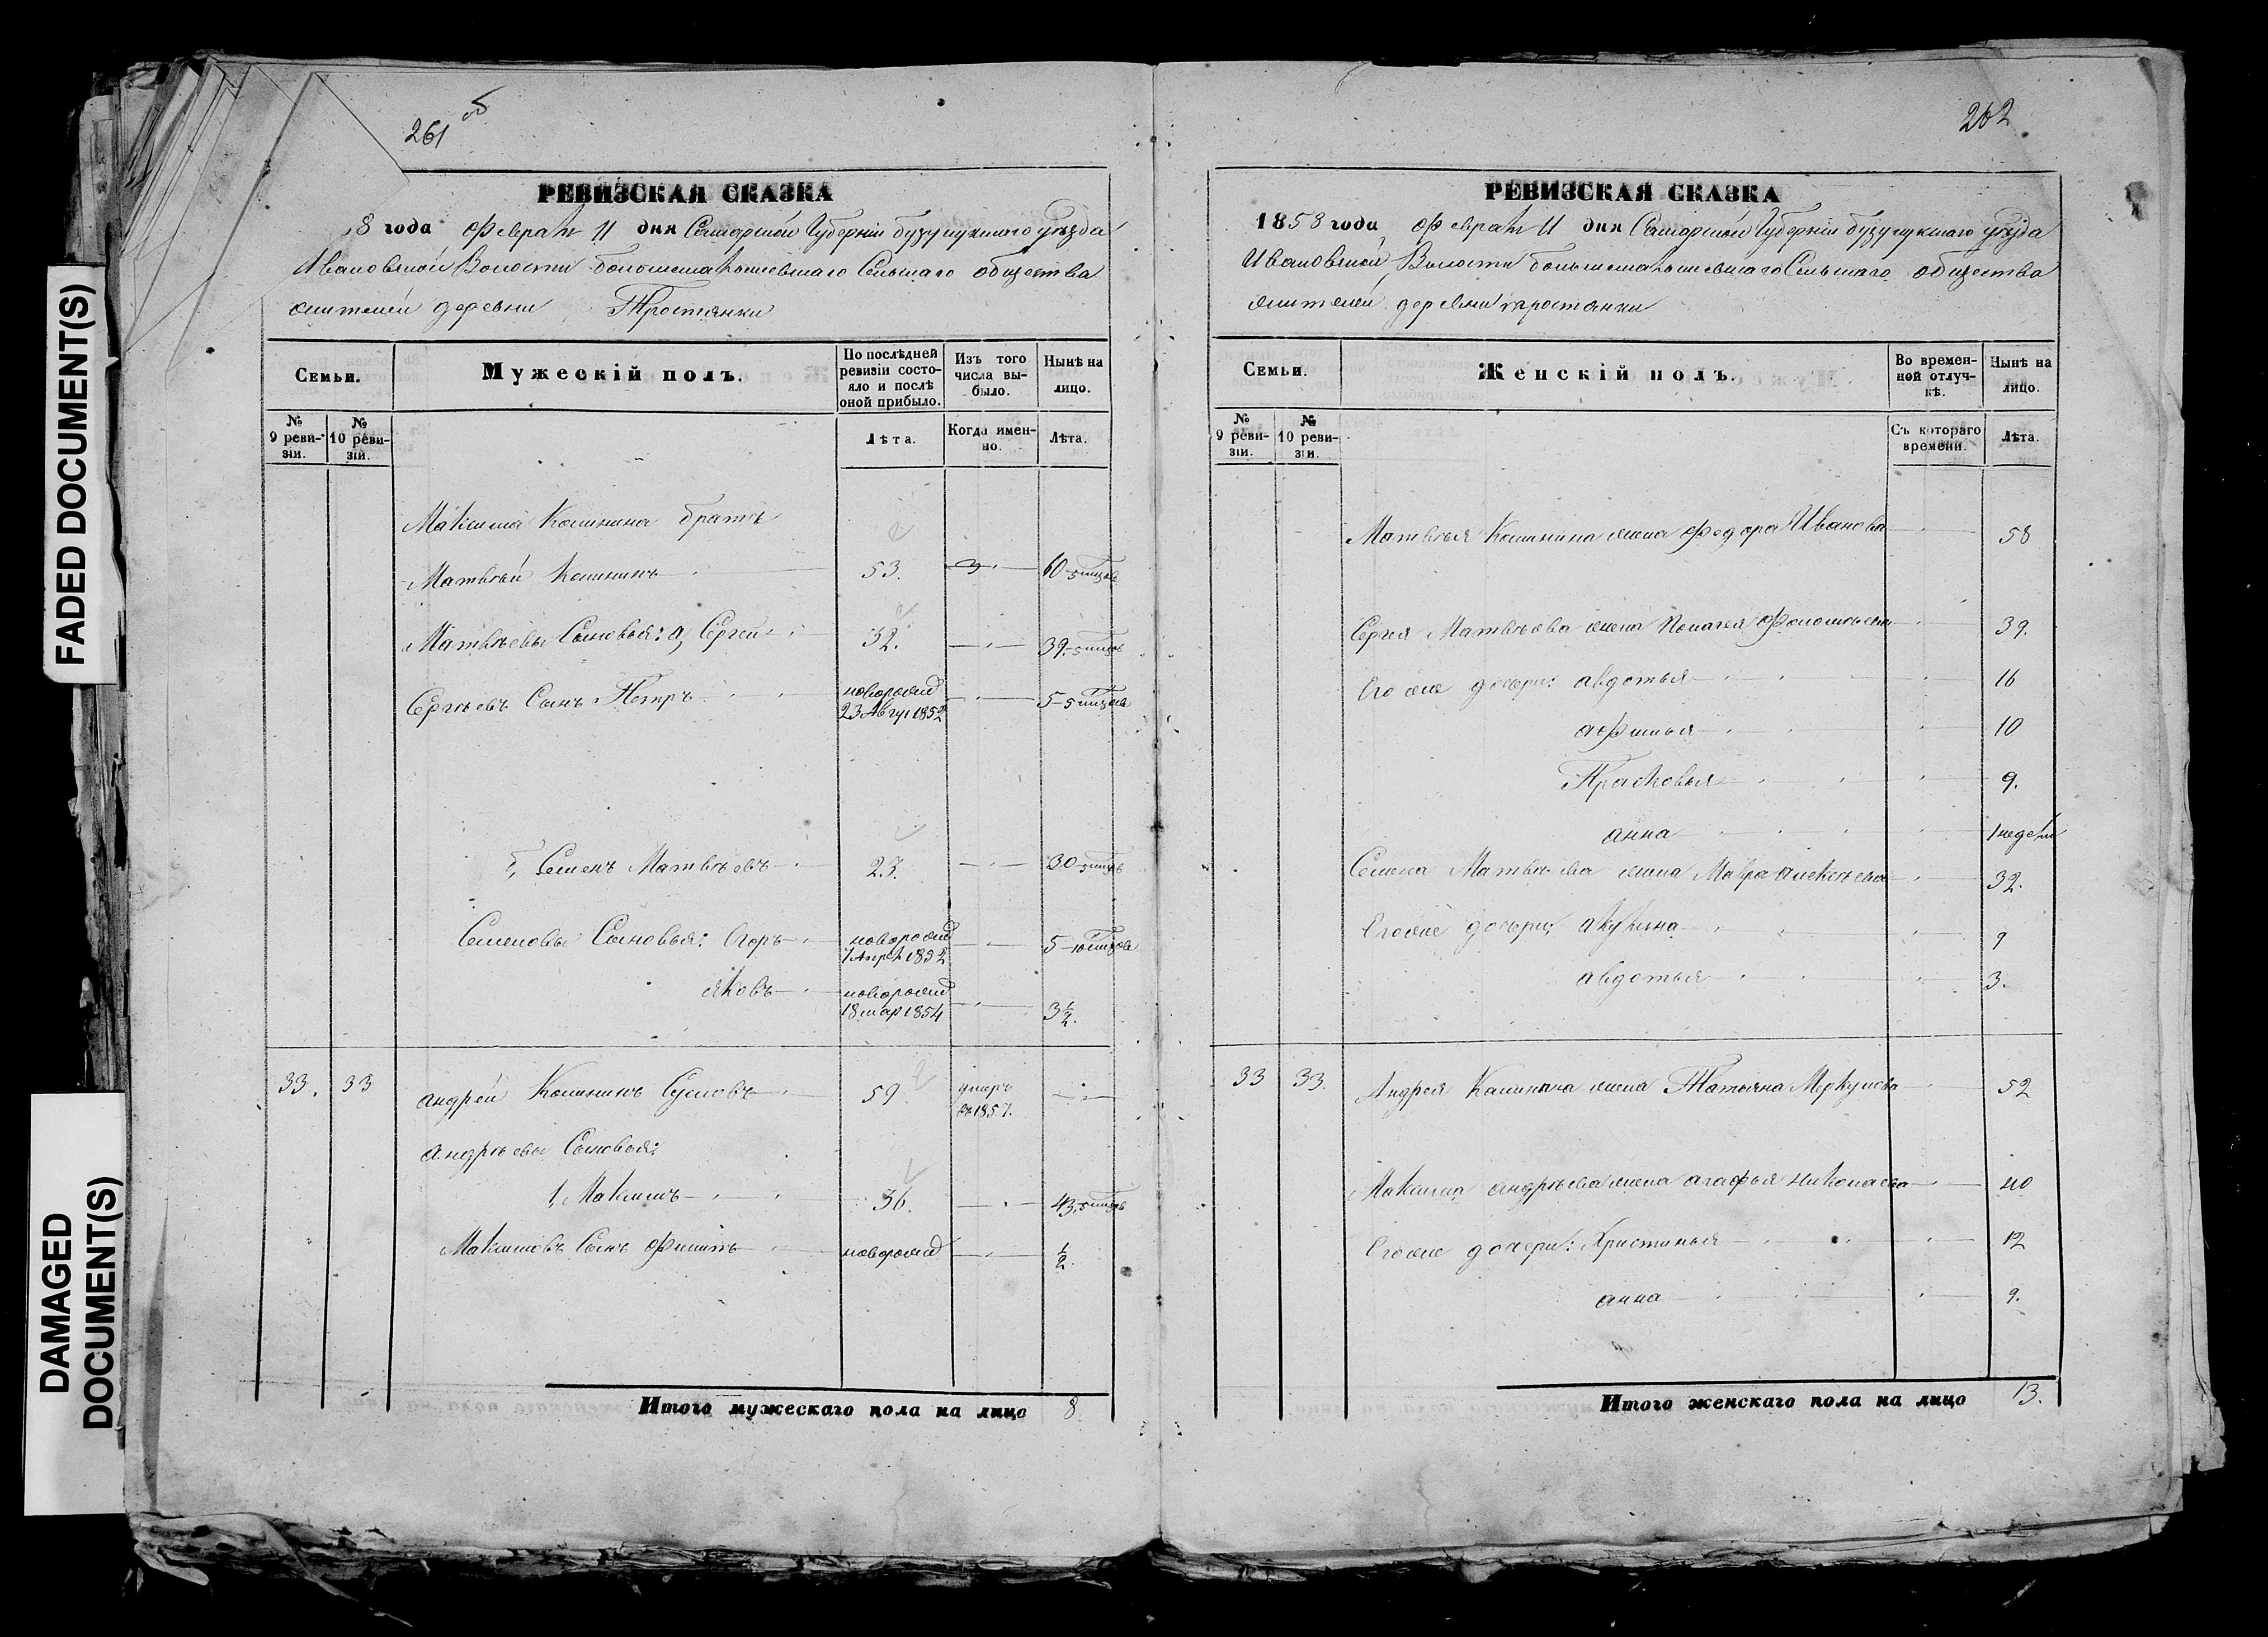 FADED DOCUMENT(S)
DAMAGED
DOCUMENT(S)
261 об
РЕВИЗСКАЯ СКАЗКА
8 года Февраля 11 дня Самарской Губерніи бузулукскаго уѣзда
Ивановской Волости Сельскаго общества
жителей деревни Тростянки
Семьи.
Мужескій полъ.
По послѣдней ревизіи состояло и послѣ оной прибыло.
Изъ того числа выбыло.
Нынѣ на лицо.
№ 9 ревизіи.
№ 10 ревизіи.
Лѣта.
Когда именно.
Лѣта.
Максима Калинина братъ
Матвѣй Калининъ 53. 60
Матвѣевы Сыновья: а, Сергей 32. 39
Сергѣевъ Сынъ Петръ новорожд 23 Авгус 1852 5
б, Семенъ Матвѣевъ 23. 30
Семеновы Сыновья: Егоръ новорожд 7 Апрѣл 1852 5
Яковъ новорожд 18 мар 1854 3½.
33. 33 андрей Калининъ Сусловъ 59 умеръ въ 1857.
андрѣевы Сыновья:
1, Максимъ 36. 43
Максимовъ Сынъ Филипъ новорожд ½.
Итого мужескаго пола на лицо 8
262
РЕВИЗСКАЯ СКАЗКА
1858 года Февраля 11 дня Самарской Губерніи бузулукскаго уѣзда
Ивановской Волости Сельскаго общества
жителей деревни тростянки
Семьи.
Женскій полъ.
Во временной отлучкѣ.
Нынѣ на лицо.
№ 9 ревизіи.
№ 10 ревизіи.
Съ котораго времени.
Лѣта.
Матвѣя Калинина жена Федора Иванова 58
Сергея Матвѣева жена Пелагея 39.
Его же дочери: авдотья 16
афимья 10
Прасковья 9.
анна 1 недели
Семена Матвѣева жена Мавра алексѣева 32.
Его же дочери: акулина 9
авдотья 3.
33 33. Андрея Калинина жена Татьяна Меркулова 52
Максима андрѣева жена агафья николаева 40
Его же дочери: Христинья 12
анна 9.
Итого женскаго пола на лицо 13.